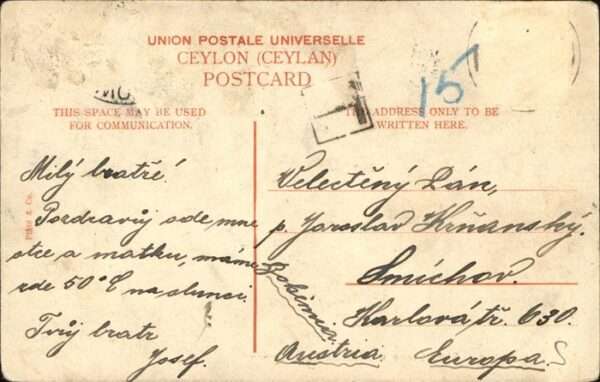 UNION POSTALE UNIVERSELLE
CEYLON (CEYLAN)
POSTCARD
15
THIS SPACE MAY BE USED
FOR COMMUNICATION.
ADDRESS ONLY TO BE
WRITTEN HERE.
Milý bratře!
Pozdravuj ode mne
otce a matku, máme
zde 50°C na slunci.
Tvůj bratr
Josef.
Velectěný Pán,
p. Jaroslav Krňanský.
Smíchov.
Karlová tř. 630.
Bohemia
Austria. Europa.
Plâté & Co.